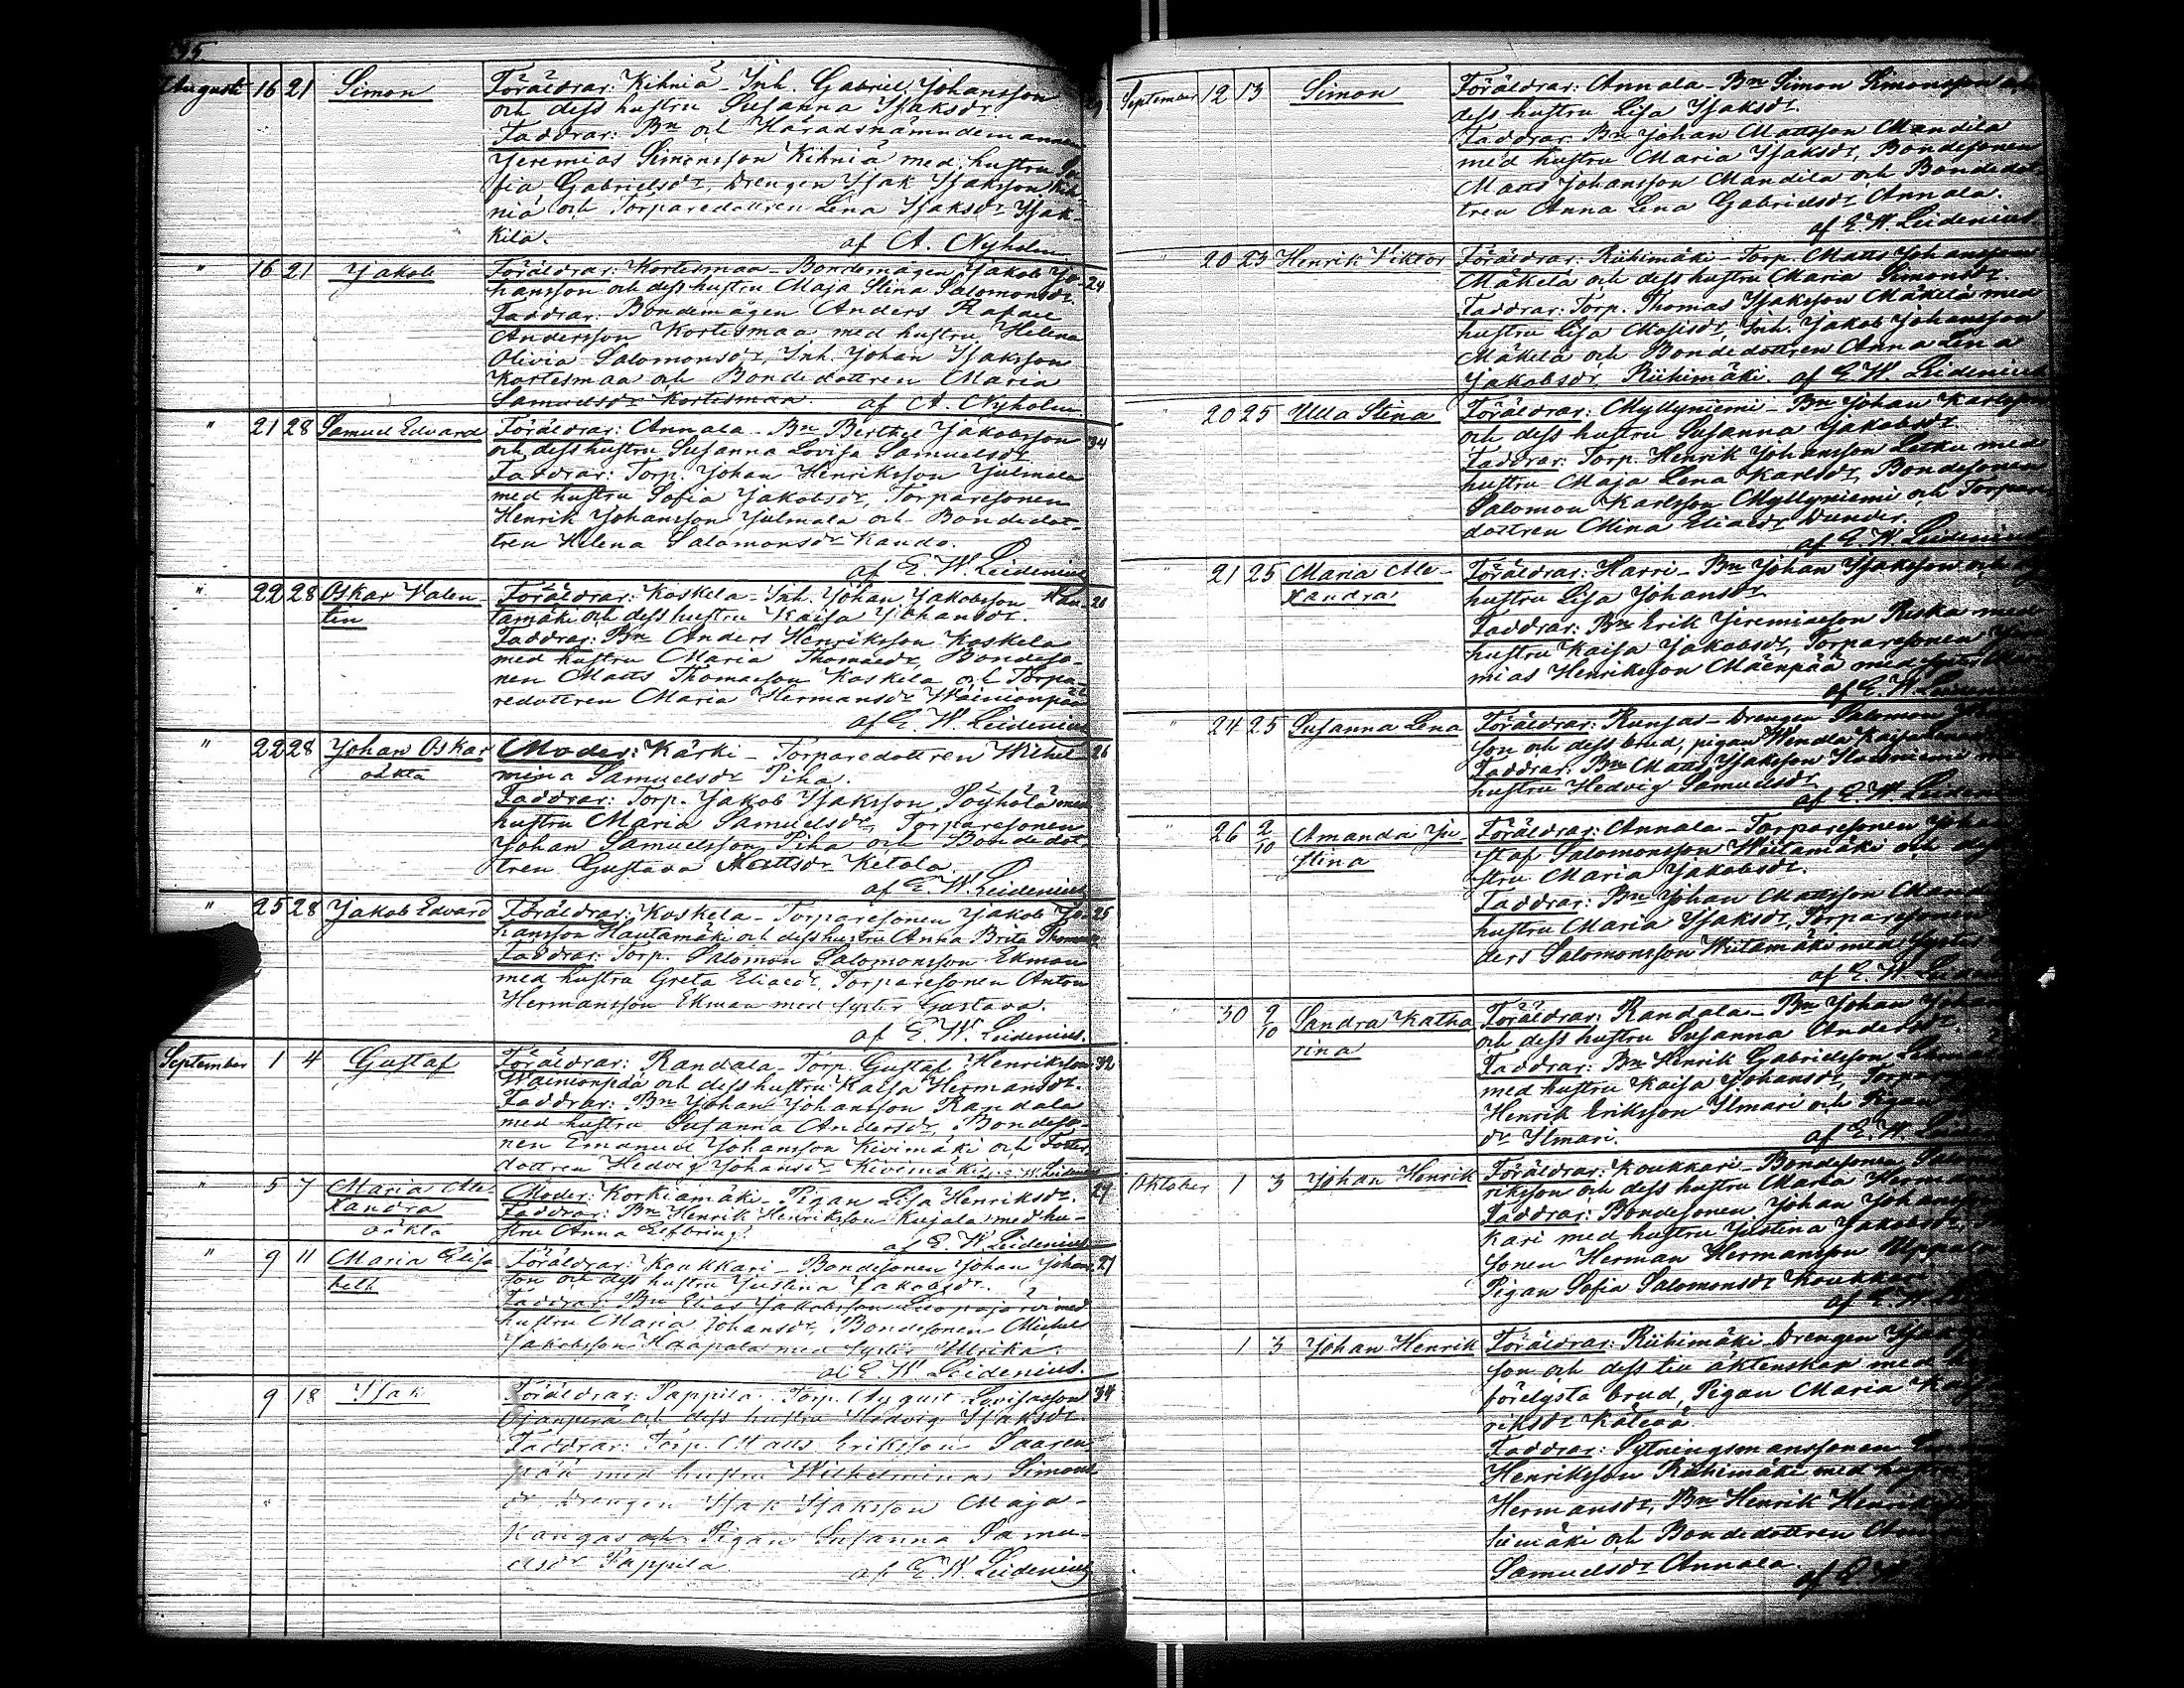 95.
Augusti 16 21 Simon Föräldrar: Kihniä - Inh. Gabriel Johansson
och dess hustru Susanna Isaksdr.
Faddrar: Bn och Häradsnämndemannen
Jeremias Simonsson Kihniä med hustru So-
fia Gabrielsdr, Drengen Isak Isaksson Kih-
niä och Torparedottren Lena Isaksdr Isak-
kila.
af A. Nyholm.
" 16 21 Jakob Föräldrar: Kortesmaa - Bondemågen Jakob Jo- 24
hansson och dess hustru Maja Stina Salomonsdr.
Faddrar: Bondemågen Anders Rafael
Andersson Kortesmaa med hustru Helena
Olivia Salomonsdr, Inh. Johan Isaksson
Kortesmaa och Bondedottren Maria
Samuelsdr Kortesmaa. af A. Nyholm.
" 21 28 Samuel Edvard Föräldrar: Annala - Bn Berthel Jakobsson 34
och dess hustru Susanna Lovisa Samuelsdr
Faddrar: Torp. Johan Henriksson Julmala
med hustru Sofia Jakobsdr, Torparesonen
Henrik Johansson Julmala och Bondedot-
tren Helena Salomonsdr Kando.
af E. W. Leidenius
" 22 28 Oskar Valen- Föräldrar: Koskela - Inh. Johan Jakobsson Hau-
tin tamäki och dess hustru Kaisa Johansdr.
Faddrar: Bn Anders Henriksson Koskela
med hustru Maria Thomasdr, Bondeso-
nen Matts Thomasson Koskela och Torpa-
redottren Maria Hermansdr Wäinionpää
af E. W. Leidenius
" 22 28 Johan Oskar Moder: Kärki - Torparedottren Wilhel- 26
oäkta mina Samuelsdr Piha.
Faddrar: Torp. Jakob Isaksson Pöyhölä med
hustru Maria Samuelsdr, Torparesonen
Johan Samuelsson Piha och Bondedot-
tren Gustava Mattsdr Ketola
af E. W. Leidenius
" 25 28 Jakob Edvard Föräldrar: Koskela - Torparesonen Jakob Jo- 25
hansson Hautamäki och dess hustru Anna Brita Thomasdr
Faddrar: Torp. Salomon Salomonsson Ekman
med hustru Greta Eliaedr, Torparesonen Anton
Hermansson Ekman med syster Gustava.
af E. W. Leidenius.
September 1 4 Gustaf Föräldrar: Randala - Torp. Gustaf Henriksson 32
Wäinionpää och dess hustru Kaisa Hermansdr.
Faddrar: Bn Johan Johansson Randala
med hustru Susanna Andersdr, Bondeso-
nen Emanuel Johansson Kivimäki och
dottren Hedvig Johansdr Kivimäki. af E. W. Leidenius
" 5 7 Maria Ale- Moder: Korkiamäki - Pigan Lisa Henriksdr. 29
xandra Faddrar: Bn Henrik Henriksson Kujala med hu-
oäkta stru Anna Elfbring.
af E. W. Leidenius
" 9 11 Maria Elisa- Föräldrar: Koukkari - Bondesonen Johan Johans- 27
beth son och dess hustru Justina Jakobsdr.
Faddrar: Bn Elias Jakobsson Luopajärvi med
hustru Maria Johansdr, Bondesonen Michel
Jakobsson Haapala med syster Ulrika.
af E. W. Leidenius.
9 18 Isak Föräldrar: Pappila - Torp. August Lovisasson 34
Ojanperä och dess hustru Hedvig Isaksdr.
Faddrar: Torp. Matts Eriksson Saaren-
pää med hustru Wilhelmina Simons-
dr, Drengen Isak Isaksson Maja-
kangas och Pigan Susanna Samu-
elsdr Pappila.
af E. W. Leidenius
September 12 13 Simon Föräldrar: Annala - Bn Simon Simonsson och
dess hustru Lisa Isaksdr.
Faddrar: Bn Johan Mattsson Mandila
med hustru Maria Isaksdr, Bondesonen
Matts Johansson Mandila och Bondedot-
tren Anna Lena Gabrielsdr Annala.
af E. W. Leidenius
20 23 Henrik Viktor Föräldrar: Riihimäki - Torp. Matts Johansson
Mäkelä och dess hustru Maria Simonsdr.
Faddrar: Torp. Thomas Isaksson Mäkelä med
hustru Lisa Mosisdr, Inh. Jakob Johansson
Mäkelä och Bondedottren Anna Lena
Jakobsdr Riihimäki. af E. W. Leidenius
" 20 25 Ulla Stina Föräldrar: Myllyniemi - Bn Johan Karlsson
och dess hustru Susanna Jakobsdr
Faddrar: Torp. Henrik Johansson Luku med
hustru Maja Lena Karlsdr, Bondesonen
Salomon Karlsson Myllyniemi och Torpare-
dottren Mina Eliaedr Dunder.
af E. W. Leidenius
" 21 25 Maria Ale- Föräldrar: Harri - Bn Johan Isaksson och
xandra hustru Lisa Johansdr
Faddrar: Bn Erik Jeremiasson Riska med
hustru Kaisa Jakobsdr, Torparesonen Jere-
mias Henriksson Mäenpää med syster
af E. W. Leidenius
" 24 25 Susanna Lena Föräldrar: Runsas - Drengen Salomon Johans-
son och dess brud, pigan Wendla
Faddrar: Bn Matts Isaksson
hustru Hedvig Samuelsdr
af E. W. Leidenius
" 26 2/10 Amanda Ju- Föräldrar: Annala - Torparesonen Johan
stina staf Salomonsson Wiitamäki och dess
stru Maria Jakobsdr.
Faddrar: Bn Johan Mattsson Mandila
hustru Maria Isaksdr, Torparesonen
ders Salomonsson Wiitamäki med syster
af E. W. Leidenius
" 30 2/10 Sandra Katha- Föräldrar: Randala - Bn Johan Johans
rina och dess hustru Susanna Andersdr
Faddrar: Bn Henrik Gabrielsson
med hustru Kaisa Johansdr,
Henrik Eriksson Ilmari och Pigan
dr Ilmari.
af E. W.
Oktober 1 3 Johan Henrik Föräldrar: Koukkari - Bondesonen
riksson och dess hustru Maria Herman
Faddrar: Bondesonen Johan Johansson
kari med hustru Justina Jakobsdr
sonen Herman Hermansson Uppala
Pigan Sofia Salomonsdr Koukkari
af E. W.
1 3 Johan Henrik Föräldrar: Riihimäki - Drengen Isak
son och dess till äktenskap med
förelysta brud, Pigan Maria
riksdr
Faddrar: Sytningsmanssonen
Henriksson Riihimäki med hustru
Hermansdr, Bn Henrik
himäki och Bondedottren
Samuelsdr Annala.
af E.